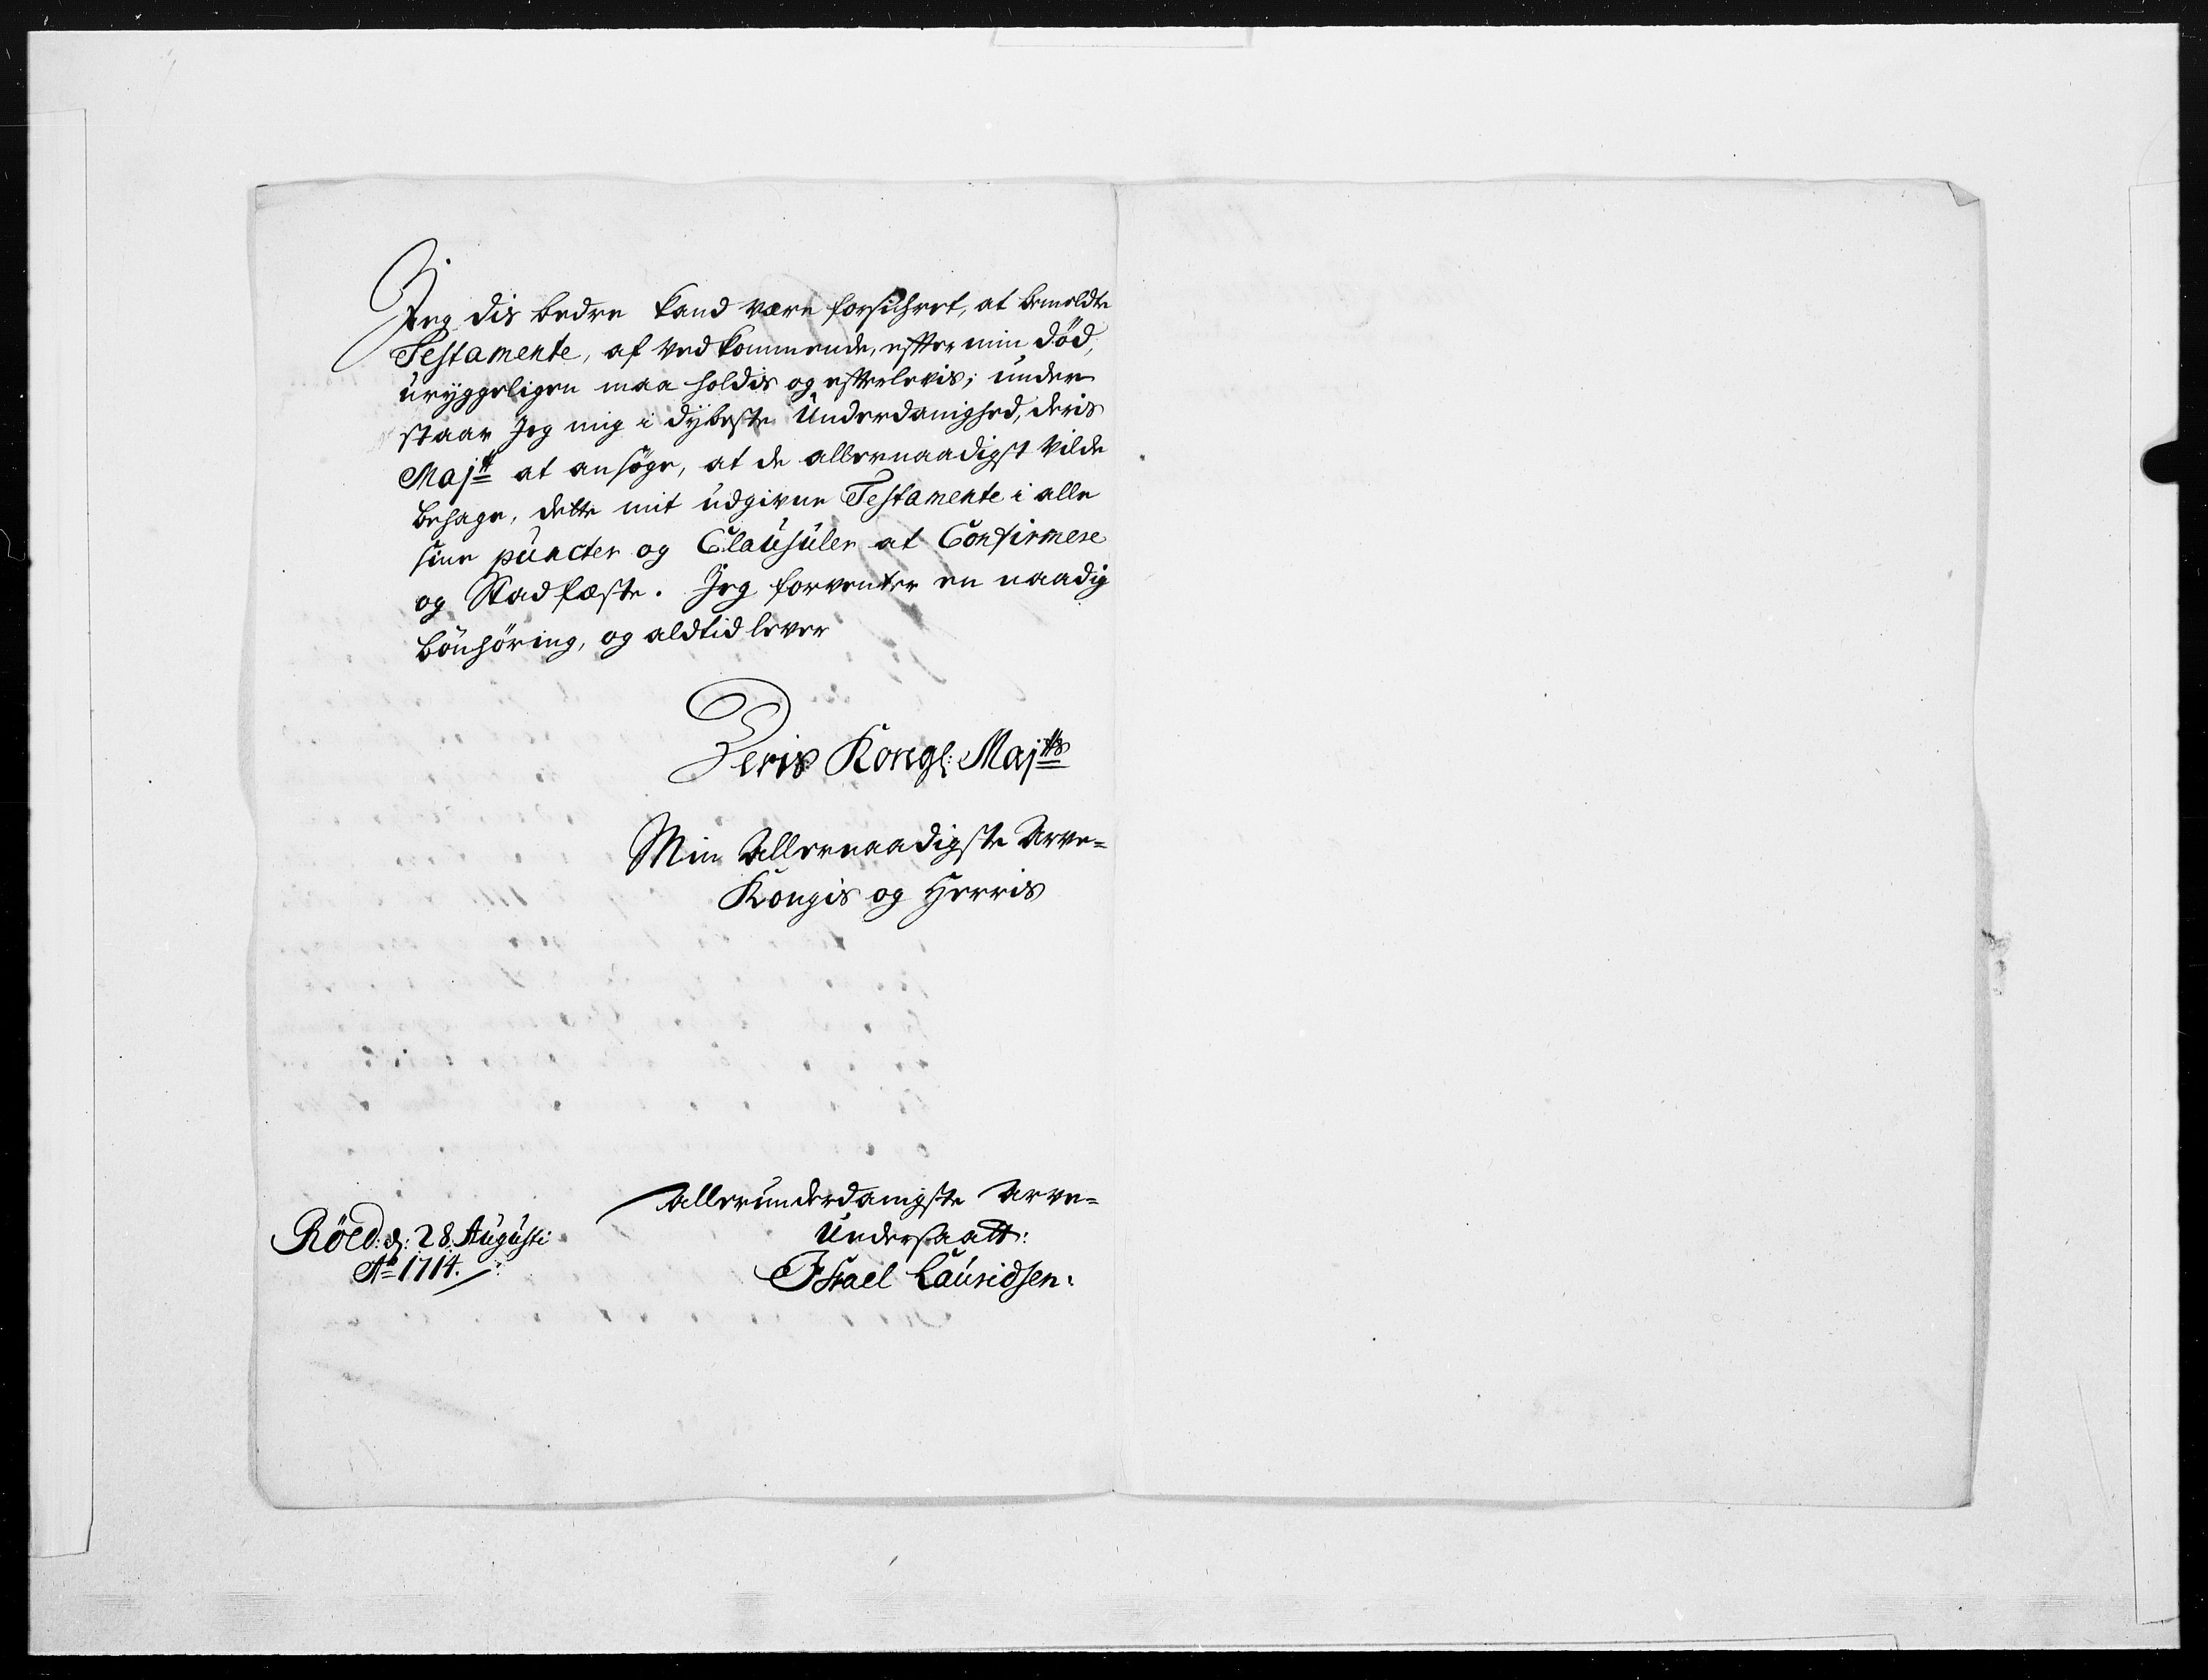 Jeg dis bedre kand være forsichret, at bemeldte
Testamente, af vedkommende, effter min død,
uryggeligen maa holdis og effterlevis; under
staar Jeg mig i dybeste Underdanighed, deris
Majtt at ansøge, at de allernaadigst vilde
behage, dette mit udgivne Testamente i alle
sine puncter og Clausuler at Confirmere
og Stadfæste. Jeg forventer en naadig
bönhöring, og aldtid lever
Deris Kongl: Majtts
Min Allernaadigste Arve-
Kongis og Herris
Allerunderdanigste Arve-
Undersaatt:
Röed: d: 28. Augusti
Ao 1714.
Israel Lauridsen: